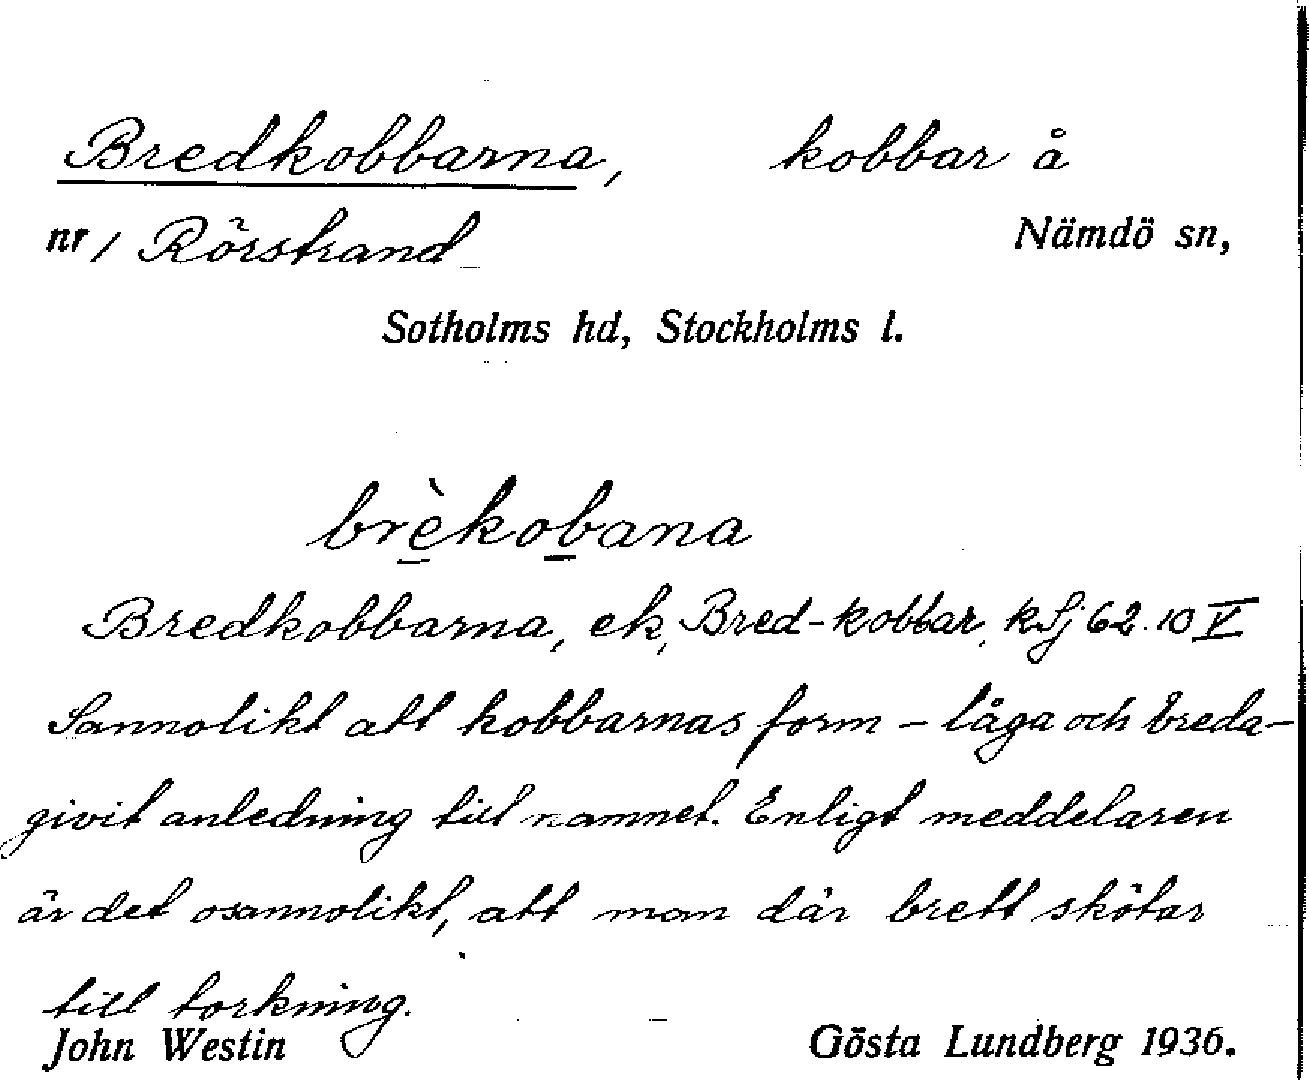 Bredkobbarna, kobbar å
nr 1 Rörstrand Nämdö sn,
Sotholms hd, Stockholms l.
brèkobana
Bredkobbarna, ek, Bred-kobbar, kSj 62.10 V
Sannolikt att kobbarnas form – låga och breda –
givit anledning till namnet. Enligt meddelaren
är det osannolikt, att man där brett skötar
till torkning.
John Westin Gösta Lundberg 1936.